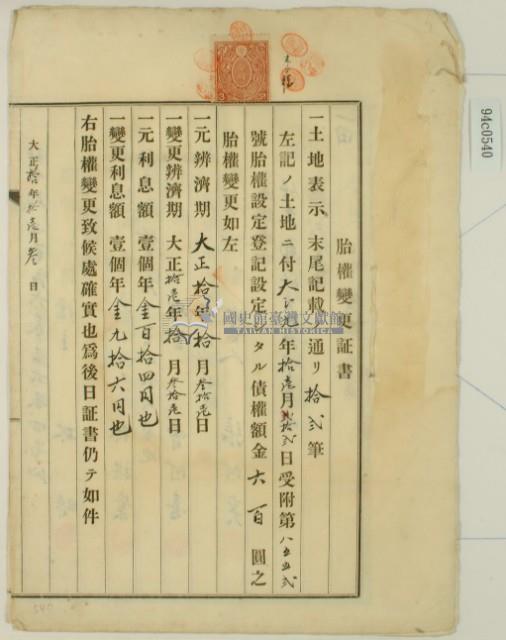 胎權變更証書
一土地表示 末尾記載ノ通リ拾弐筆
左記ノ土地ニ付大正九年拾壱月弐拾弐日受附第八五五弐
號胎權設定登記設定シタル債權額金六百圓之
胎權變更如左
一元辨濟期 大正拾年拾月叁拾壱日
一變更辨濟期 大正拾壱年拾月叁拾壱日
一元利息額 壹個年金百拾四円也
一變更利息額 壹個年金九拾六円也
右胎權變更致候處確實也爲後日証書仍テ如件
大正拾年拾壱月叁日
國史館臺灣文獻館
TAIWAN HISTORICA
94c0540
540